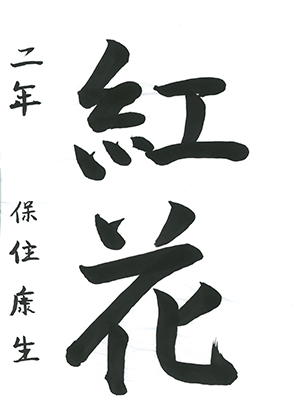 紅花
二年 保住康生